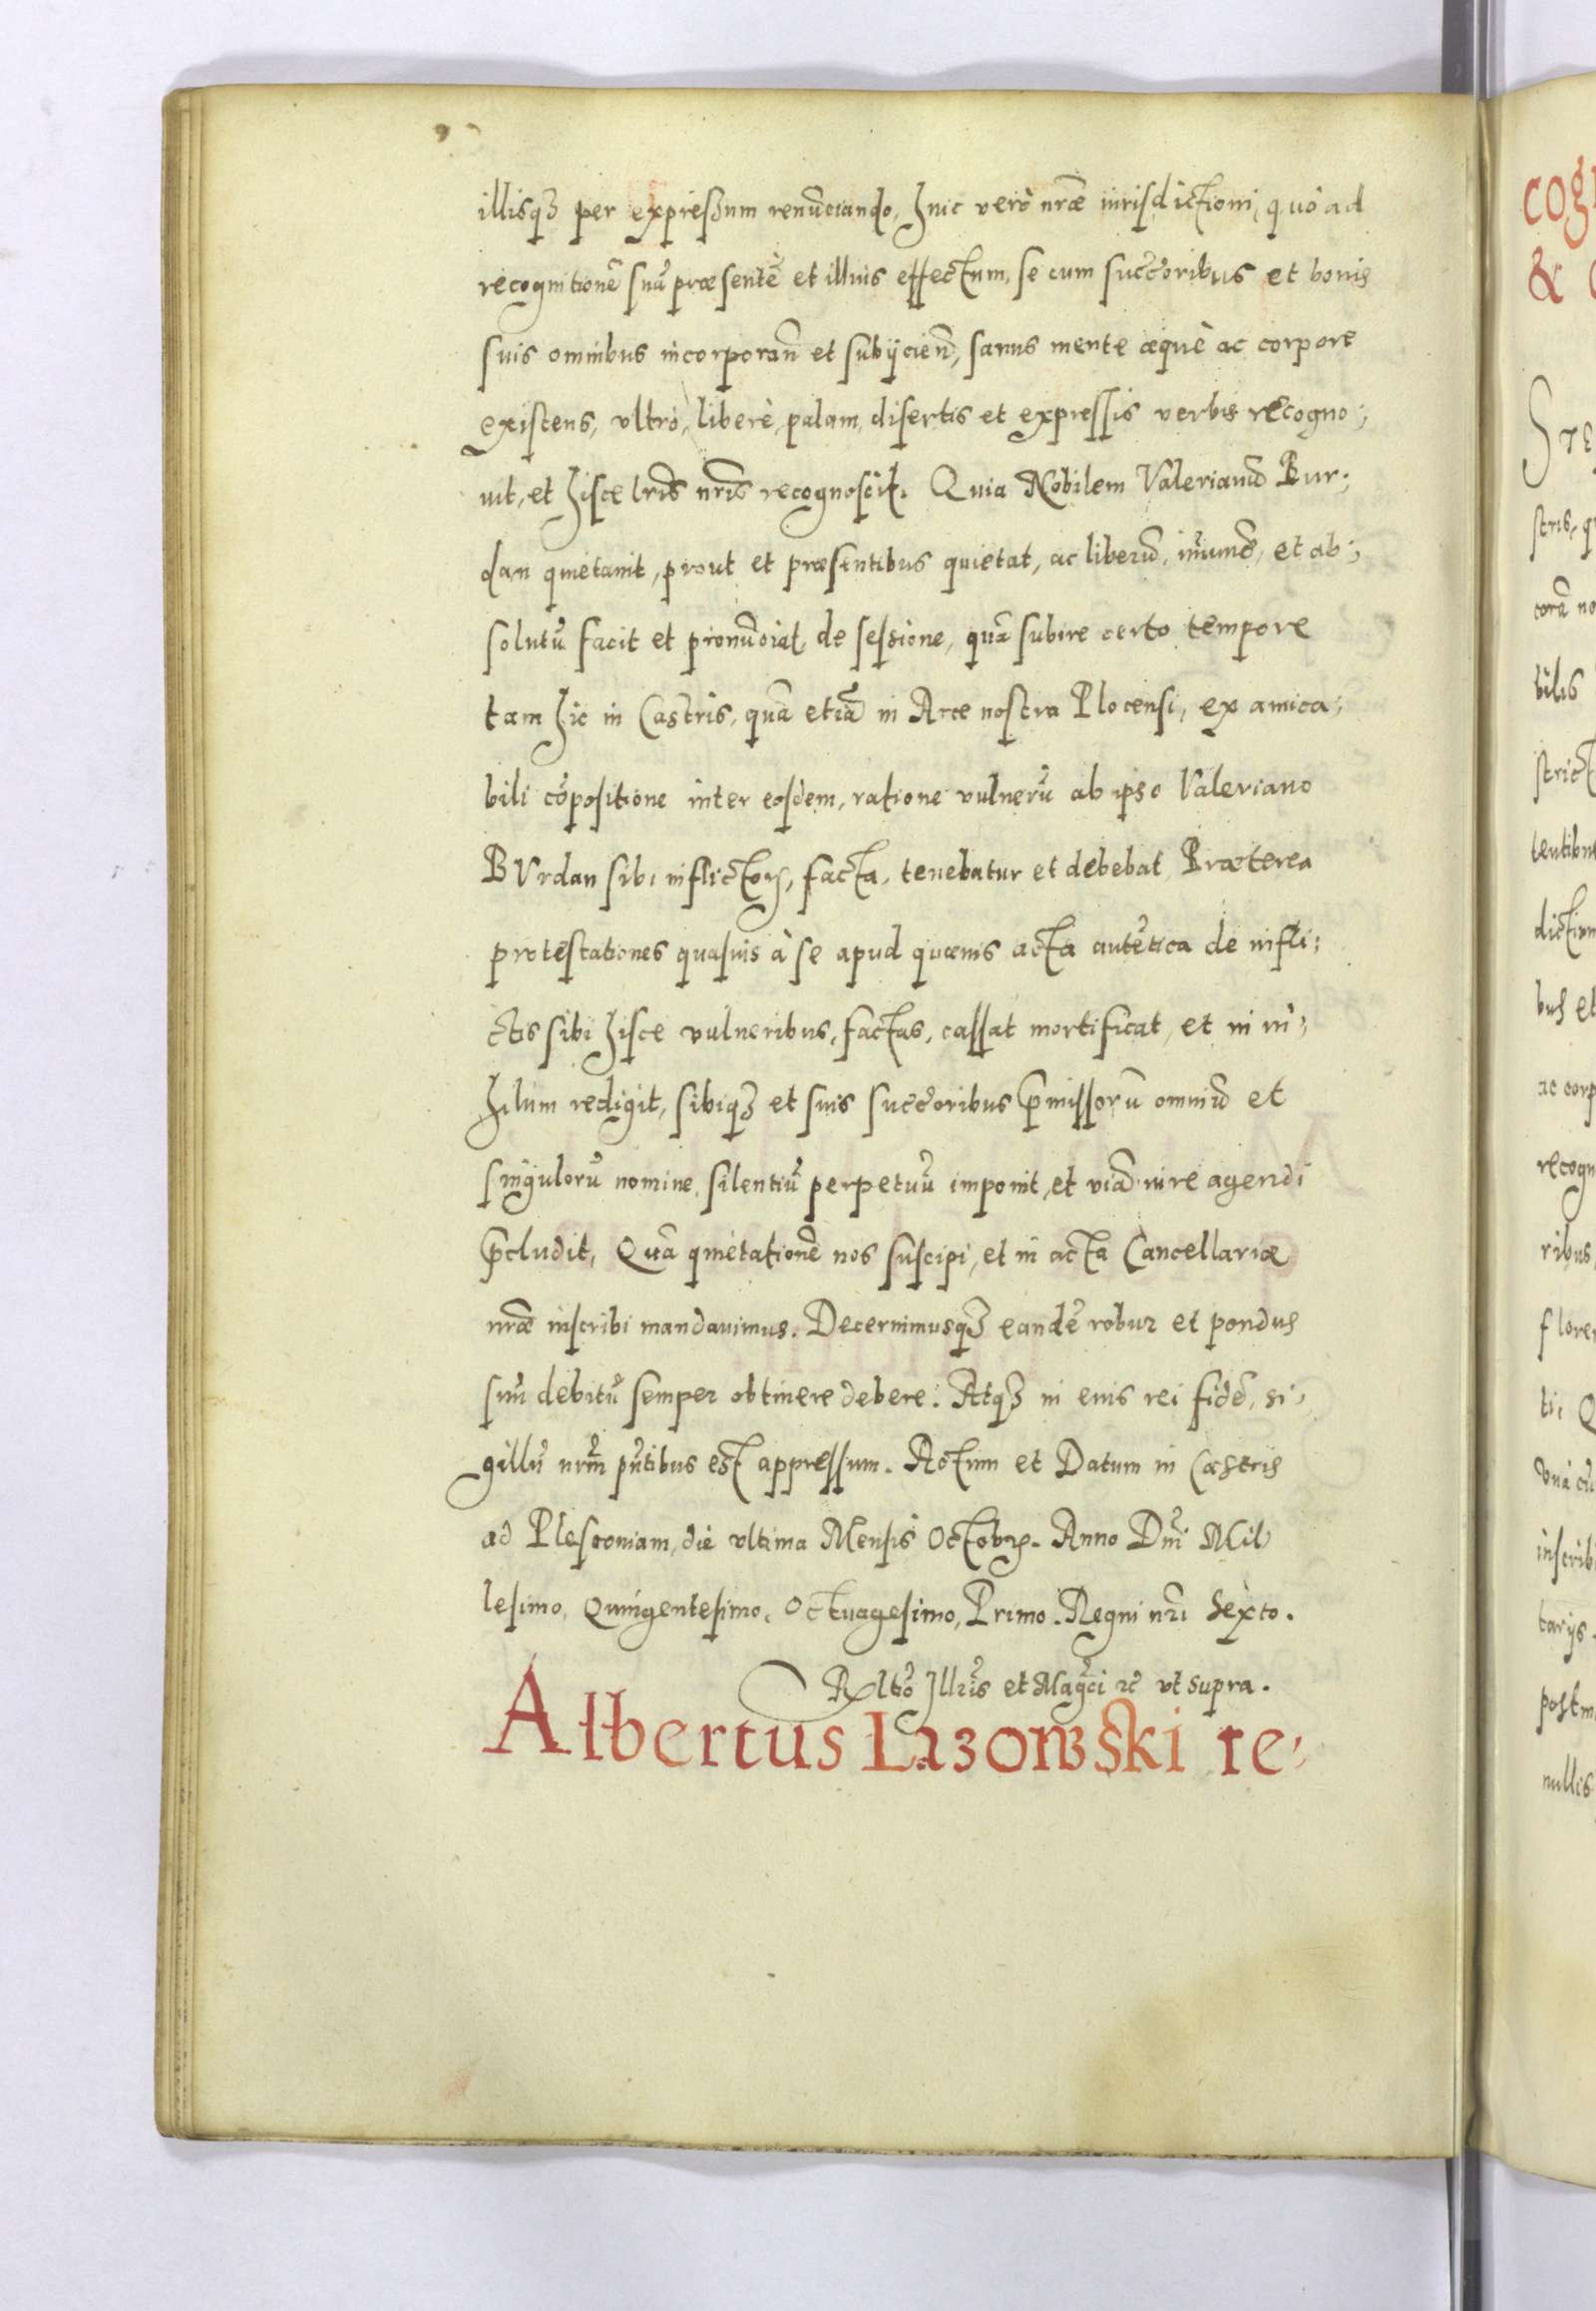 illisqꝫ per expressum renūciando, Huic verò nr̃æ iurisdictioni, quò ad
recognitionē suā præsentē et illius effectum, se cum succ̃oribus et bonis
suis omnibus incorporan̄ et subijcien̄, sanus mente æquè ac corpore
existens, vltrò, liberè, palam, disertis et expressis verbis recogno;
uit, et hisce lr̃is nr̃is recognoscit. Quia Nobilem Valerianū Bur;
dan quietauit, prout et præsentibus quietat, ac liberū, im̄unē, et ab;
solutū facit et pronūciat, de sessione, quā subire certo tempore
tam hic in Castris, quā etiā in Arce nostra Plocensi, ex amica;
bili cōpositione inter eosdem, ratione vulnerū ab ipso Valeriano
BUrdan sibi inflictoꝝ, facta, tenebatur et debebat, Præterea
protestationes quasuis à se apud quæuis acta autētica de infli;
ctis sibi hisce vulneribus, factas, cassat mortificat, et in ni;
hilum redigit, sibiqꝫ et suis succ̃oribus p̄missorū omniū et
singulorū nomine, silentiū perpetuū imponit, et viā iure agendi
p̄cludit, Quā quietationē nos suscipi, et in acta Cancellariæ
nr̃æ inscribi mandauimus. Decernimusqꝫ eandē robur et pondus
suū debitū semper obtinere debere. Atqꝫ in euis rei fidē, si;
gillū nr̃m pn̄tibus est appressum. Actum et Datum in Castris
ad Plesconiam, die vltima Mensis Octobꝝ. Anno Dn̄i Mil
lesimo, Quingentesimo, Octuagesimo, Primo. Regni nr̃i Sexto.
Rltio Illr̃is et Mag̃ci ꝛc̃ vt supra.
Albertus Lazowski re;
cog
&
Ste
stris, q
corā no
bilis
strict
tentibu
diction
bus et
ac corp
recogn
ribus,
flore
ti, Q
vnà cū
inscrib
tarijs.
post m
nullis